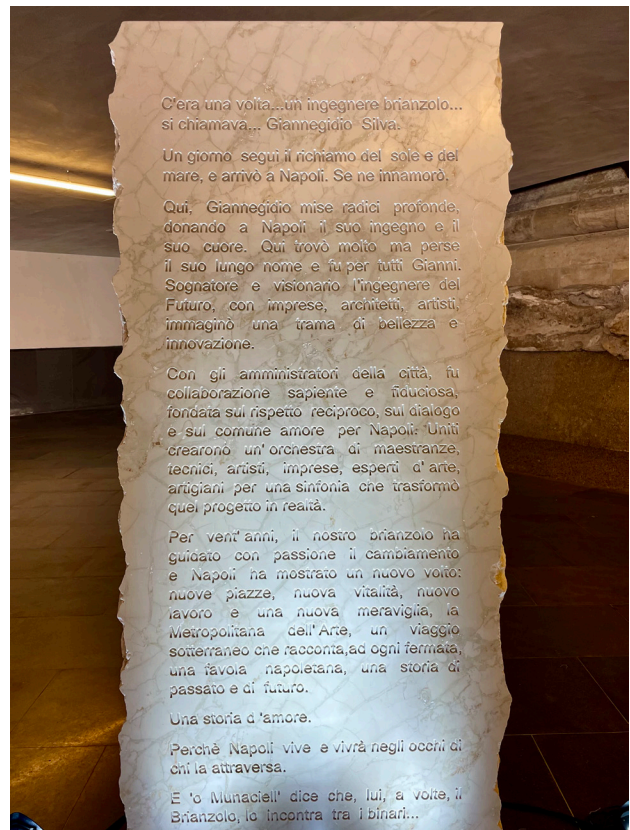 C'era una volta...un ingegnere brianzolo...
si chiamava... Giannegidio Silva.
Un giorno seguì il richiamo del sole e del
mare, e arrivò a Napoli. Se ne innamorò.
Qui, Giannegidio mise radici profonde,
donando a Napoli il suo ingegno e il
suo cuore. Qui trovò molto ma perse
il suo lungo nome e fu per tutti Gianni.
Sognatore e visionario l'ingegnere del
Futuro, con imprese, architetti, artisti,
immaginò una trama di bellezza e
innovazione.
Con gli amministratori della città, fu
collaborazione sapiente e fiduciosa,
fondata sul rispetto reciproco, sul dialogo
e sul comune amore per Napoli. Uniti
crearono un'orchestra di maestranze,
tecnici, artisti, imprese, esperti d'arte,
artigiani per una sinfonia che trasformò
quel progetto in realtà.
Per vent'anni, il nostro brianzolo ha
guidato con passione il cambiamento
e Napoli ha mostrato un nuovo volto:
nuove piazze, nuova vitalità, nuovo
lavoro e una nuova meraviglia, la
Metropolitana dell'Arte, un viaggio
sotterraneo che racconta,ad ogni fermata,
una favola napoletana, una storia di
passato e di futuro.
Una storia d'amore.
Perchè Napoli vive e vivrà negli occhi di
chi la attraversa.
E 'o Munaciell' dice che, lui, a volte, il
Brianzolo, lo incontra tra i binari...